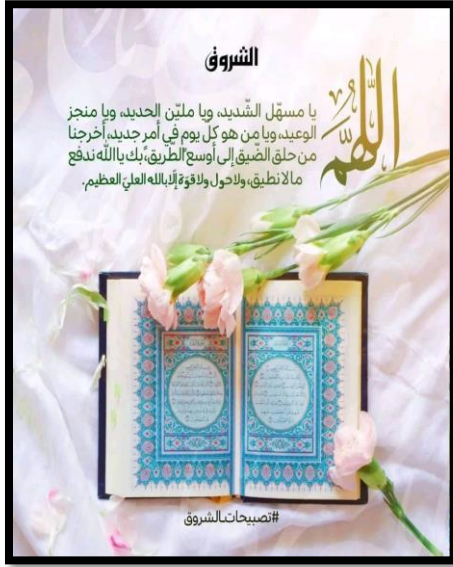 الشروق
اللَّهُمَّ
يا مسهّل الشّديد، ويا مليّن الحديد، ويا منجز
الوعيد، ويا من هو كل يوم في أمر جديد، أخرجنا
من حلق الضّيق إلى أوسع الطّريق، بك يا الله ندفع
ما لا نطيق، ولا حول ولا قوّة إلّا بالله العليّ العظيم.
#تصبيحات_الشروق